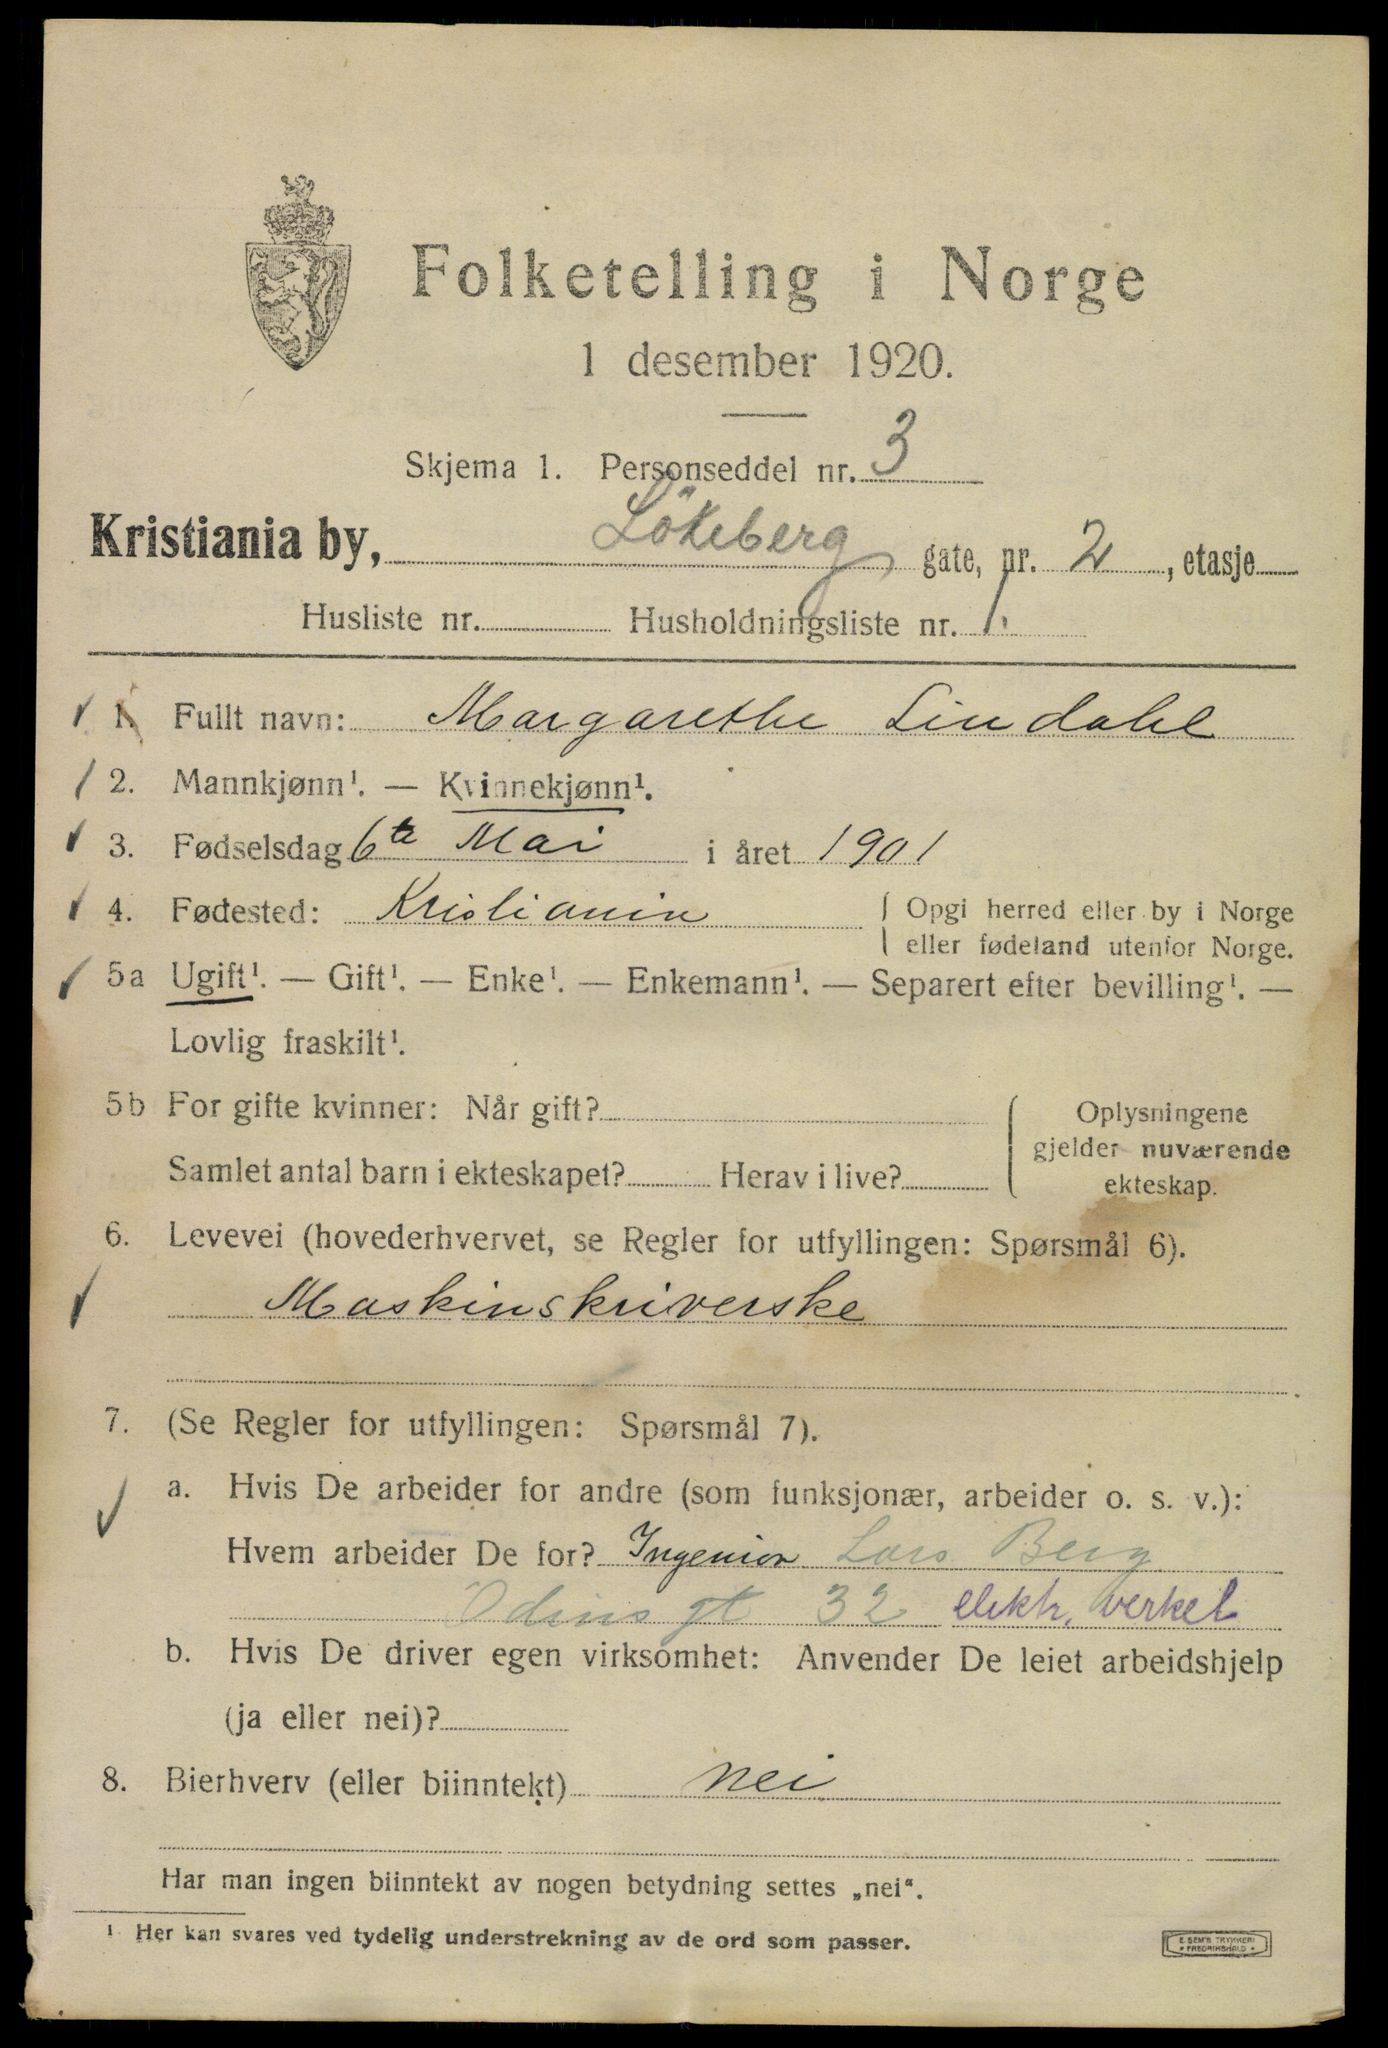 Folketelling i Norge
1 desember 1920.
Skjema 1. Personseddel nr. 3
Kristiania by, Lökeberg gate, nr. 2, etasje
Husliste nr. Husholdningsliste nr. 1.
1. Fullt navn: Margarethe Lindahl
2. Mannkjønn¹. — Kvinnekjønn¹.
3. Fødselsdag 6te Mai i året 1901
4. Fødested: Kristiania { Opgi herred eller by i Norge
eller fødeland utenfor Norge.
5a Ugift¹. — Gift¹. — Enke¹. — Enkemann¹. — Separert efter bevilling¹. —
Lovlig fraskilt¹.
5b For gifte kvinner: Når gift? { Oplysningene
gjelder nuværende
Samlet antal barn i ekteskapet? Herav i live? ekteskap.
6. Levevei (hovederhvervet, se Regler for utfyllingen: Spørsmål 6).
Maskinskriverske
7. (Se Regler for utfyllingen: Spørsmål 7).
a. Hvis De arbeider for andre (som funksjonær, arbeider o. s. v.):
Hvem arbeider De for? Ingeniör Lars Berg
Odins gt 32 elektr. verket
b. Hvis De driver egen virksomhet: Anvender De leiet arbeidshjelp
(ja eller nei)?
8. Bierhverv (eller biinntekt) nei
Har man ingen biinntekt av nogen betydning settes „nei“.
¹ Her kan svares ved tydelig understrekning av de ord som passer.
E. SEM'S TRYKKERI
* FREDRIKSHALD *